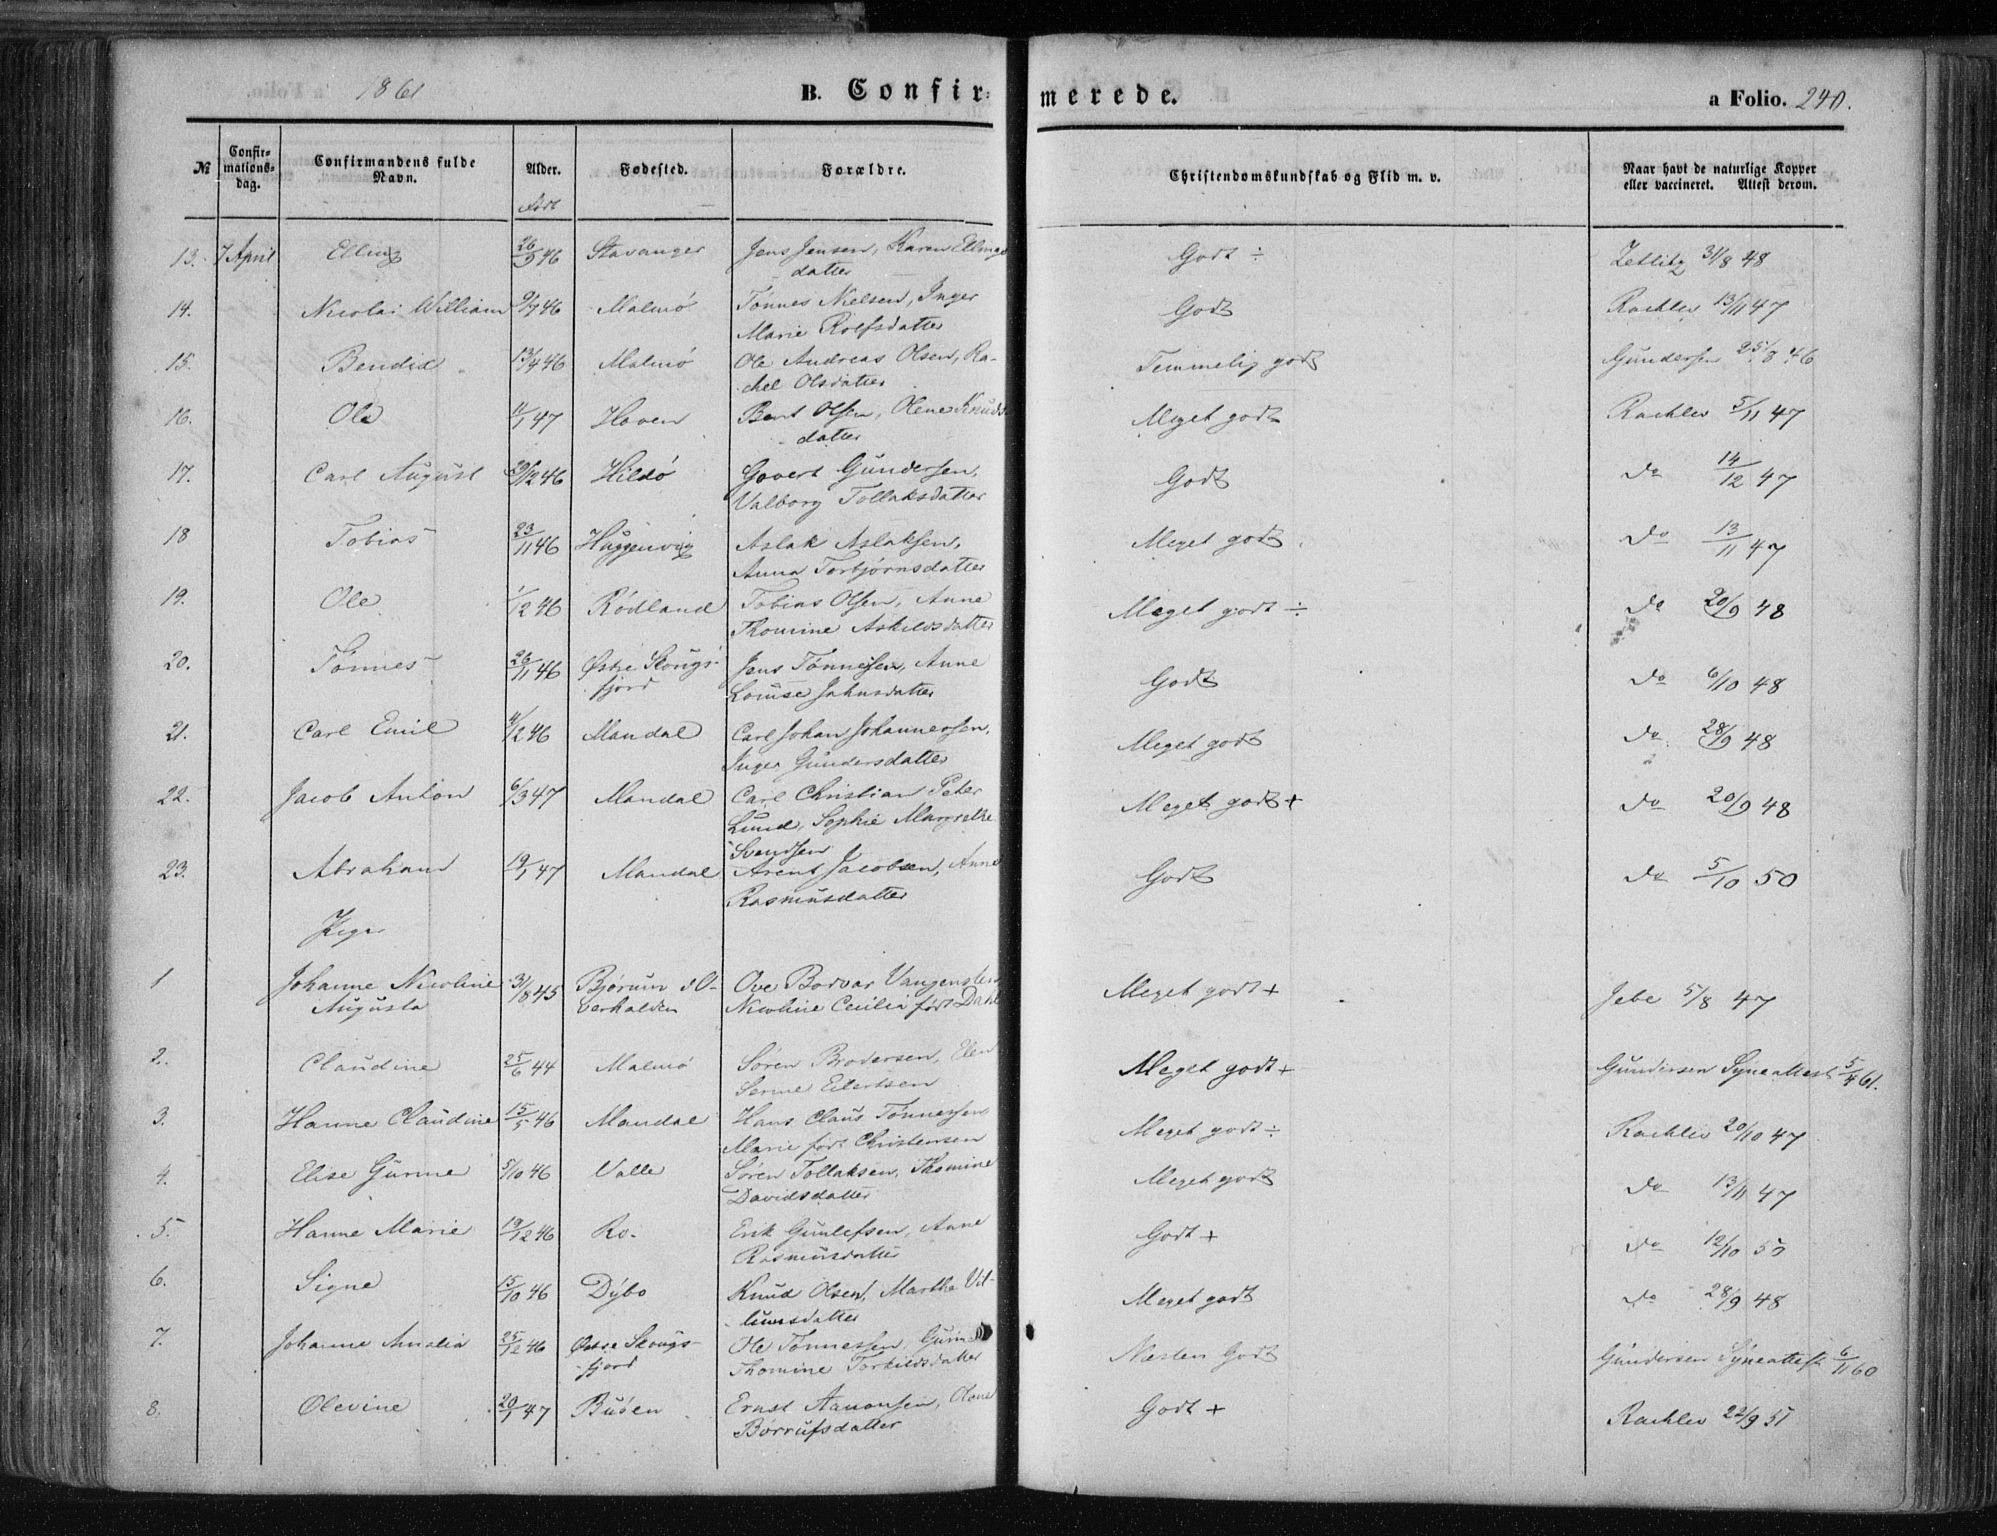 1861 B. Confirmerede. a Folio. 240.
№ Confirmationsdag. Confirmandens fulde Navn. Alder. Fødested. Forældre. Christendomskundskab og Flid m. v. Naar havt de naturlige Kopper eller vaccineret. Attest derom.
13. 7 April Elling 26/5 46 Stavanger Jens Jensen, Karen Ellings Godt ÷ Zetlitz 31/8 48
datter
14. Nicolai William 9/7 46 Malmø Tönnes Nielsen, Inger Godt Rachlev 13/11 47
Marie Rolfsdatter
15. Bendid 13/9 46 Malmø Ole Andreas Olsen, Ra- Temmelig godt Gundersen 25/8 46
chel Olsdatter
16. Ole 11/1 47 Hoven Bent Olsen, Olene Knuds Meget godt Rachlev 5/11 47
datter
17. Carl August 29/12 46 Hildö Govert Gundersen, Godt do 14/12 47
Valborg Tollaksdatter
18 Tobias 23/11 46 Huggenvig Aslak Aslaksen, Meget godt do 13/11 47
Anna Torbjørnsdatter
19. Ole 1/12 46 Rödland Tobias Olsen, Anne Meget godt ÷ do 20/9 48
Thomine Askildsdatter
20. Tönnes 26/11 46 Østre Skougs- Jens Tønnesen, Anne Godt do 6/10 48
fjord Louise Jahnsdatter
21. Carl Emil 11/12 46 Mandal Carl Johan Johannessen, Meget godt do 28/9 48
Inger Gundersdatter
22. Jacob Anton 6/3 47 Mandal Carl Christian Peter Meget godt + do 20/9 48
Lund, Sophie Margrethe
Svendsen
23. Abraham 19/1 47 Mandal Arent Jacobsen, Anne Godt do 5/10 50
Rasmusdatter
Piger
1 Johanne Nicoline 31/8 45 Bjørum i O- Ove Bodvar Vangensten Meget godt + Jebe 5/8 47
Augusta verhalden Nicoline Cecilia født Dahl
2. Claudine 25/6 44 Malmø Sören Brodersen, Elen Meget godt + Gundersen Syneattest 5/4 61.
Serine Eilertsen
3. Hanne Claudine 15/5 46 Mandal Hans Claus Tönnessen Meget godt ÷ Rachlev 20/10 47
Marie født Christensen
4. Elise Gurine 5/10 46 Valle Sören Tollaksen, Thomine Meget godt do 13/11 47
Davidsdatter
5. Hanne Marie 19/12 46 Ro. Erik Gunlefsen, Anne Godt + do 12/10 50
Rasmusdatter
6. Signe 15/10 46 Dybo Knud Olsen, Marthe Vil- Meget godt do 28/9 48
lumsdatter
7. Johanne Amalia 25/12 46 Østre Skougs- Ole Tønnessen, Gurine Næsten Godt Gundersen Syneattest 6/11 60
fjord Thomine Torkildsdatter
8. Olevine 20/1 47 Buöen Ernst Aanonsen, Olene Godt + Rachlev 22/9 51
Börrufsdatter